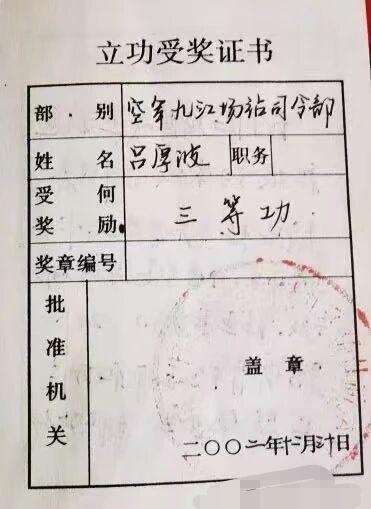 立功受奖证书
部别 空军九江场站司令部
姓名 吕厚波 职务
受何奖励 三等功
奖章编号
批准机关
盖章
二〇〇二年十二月卅日